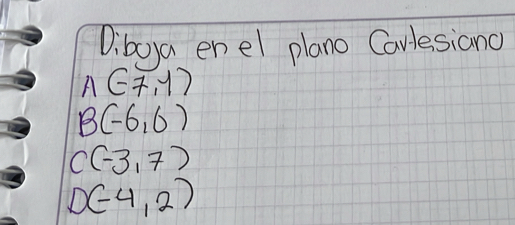 Dibuja en el plano Cartesiano
A(-7,1)
B(-6,6)
C(-3,7)
D(-4,2)